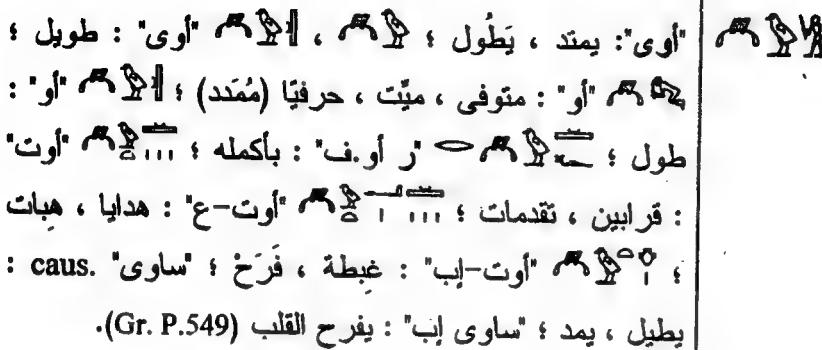 "أوى": يمتد ، يَطُول ؛ 𓄫𓅱 ، 𓄫𓅱 "أوى" : طويل ؛
"أو" : متوفى ، ميِّت ، حرفيًا (مُمَدد) ؛ 𓄫𓅱 "أو" :
طول ؛ "ر أو.ف" : بأكمله ؛ "أوت"
: قرابين ، تقدمات ؛ "أوت-ع" : هدايا ، هِبات
؛ "أوت-إب" : غبطة ، فَرَحْ ؛ "ساوى" caus. :
يطيل ، يمد ؛ "ساوى إب" : يفرح القلب (Gr. P.549).